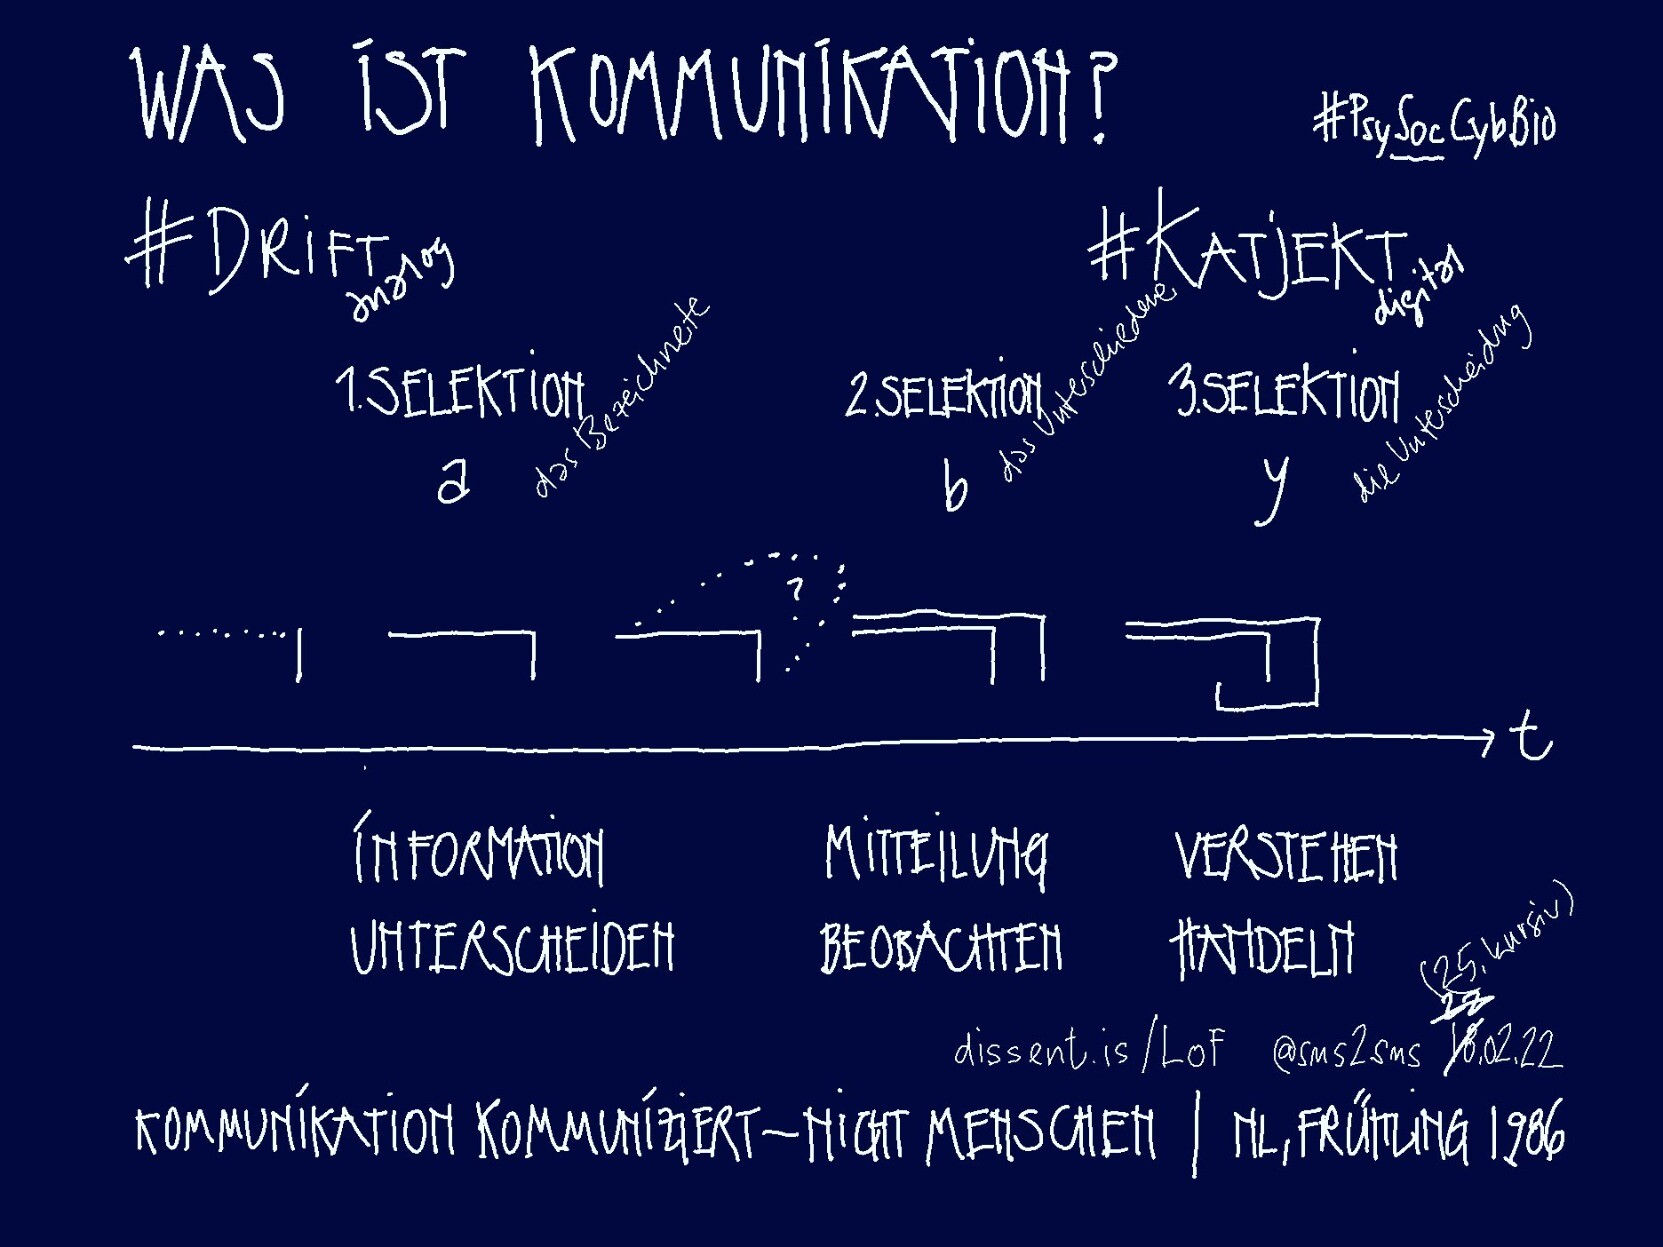 WAS IST KOMMUNIKATION?
#PsySocCybBio
#DRIFT
analog
#KATJEKT
digital
1. SELEKTION
das Bezeichnete
2. SELEKTION
das Unterschiedene
3. SELEKTION
die Unterscheidung
a
b
y
?
t
INFORMATION
MITTEILUNG
VERSTEHEN
UNTERSCHEIDEN
BEOBACHTEN
HANDELN
(25, kursiv)
22
dissent.is/LoF @sms2sms 18.02.22
KOMMUNIKATION KOMMUNIZIERT – NICHT MENSCHEN | NL, FRÜHLING 1986